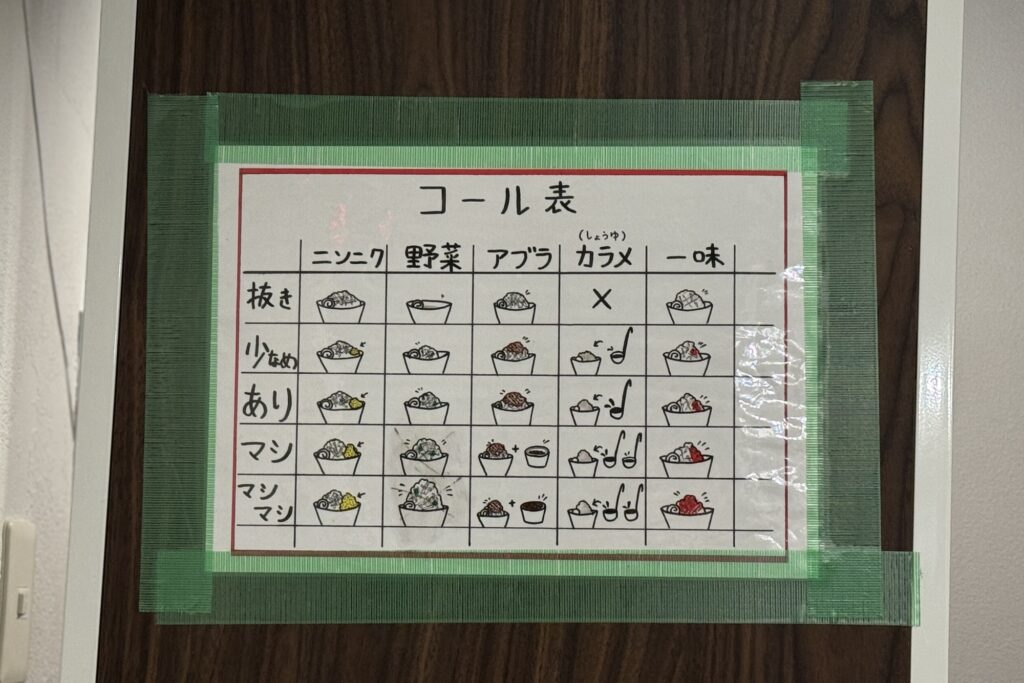 コール表
(しょうゆ)
ニンニク 野菜 アブラ カラメ 一味
抜き
少なめ
あり
マシ
マシ
マシ